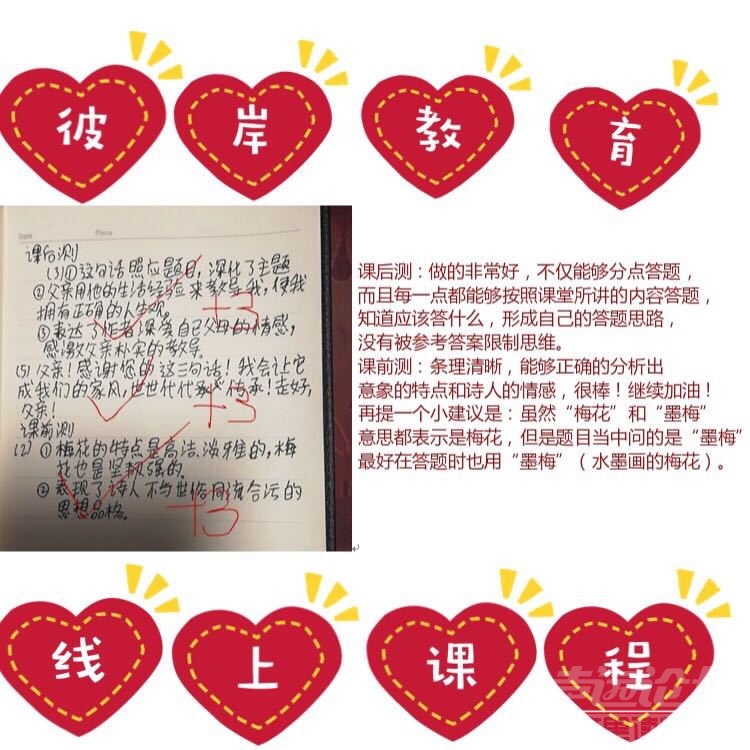 彼岸教育
Date
Place
课后测
(3)①这句话照应题目,深化了主题
②父亲用他的生活经验来教导我,使我
拥有正确的人生观。
③表达了作者深爱自己父母的情感,
感激父亲朴实的教导。
+3
(5)父亲!感谢您的这三句话!我会让它
成我们的家风,世世代代传承!走好,
父亲!
+3
课前测
(2)①梅花的特点是高洁、淡雅的,梅
花也是坚强的。
②表现了诗人不与世俗同流合污的
思想品格。
+3
课后测:做的非常好,不仅能够分点答题,
而且每一点都能够按照课堂所讲的内容答题,
知道应该答什么,形成自己的答题思路,
没有被参考答案限制思维。
课前测:条理清晰,能够正确的分析出
意象的特点和诗人的情感,很棒!继续加油!
再提一个小建议是:虽然“梅花”和“墨梅”
意思都表示是梅花,但是题目当中问的是“墨梅”
最好在答题时也用“墨梅”(水墨画的梅花)。
线上课程